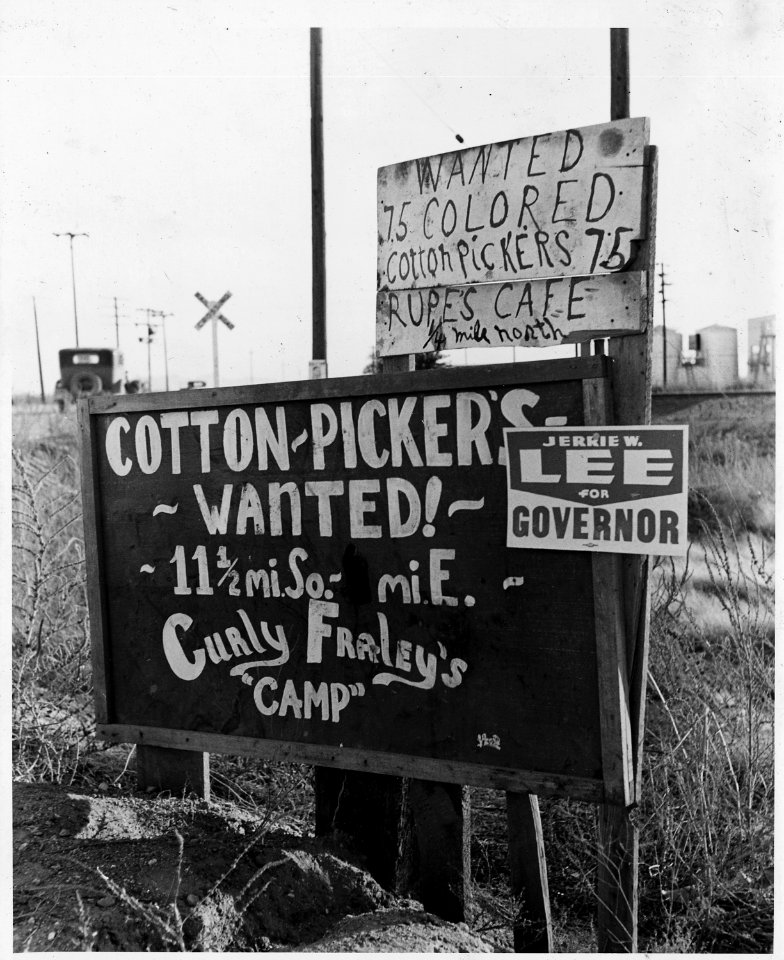 WANTED
75 COLORED
Cotton PicKERS 75
RUPE'S CAFE
1/4 mile north
COTTON~PICKER'S~
~WANTED!~
~11 1/2 mi.So.~ mi.E. ~
CURLY FRALEY'S
"CAMP"
JERRIE W.
LEE
FOR
GOVERNOR